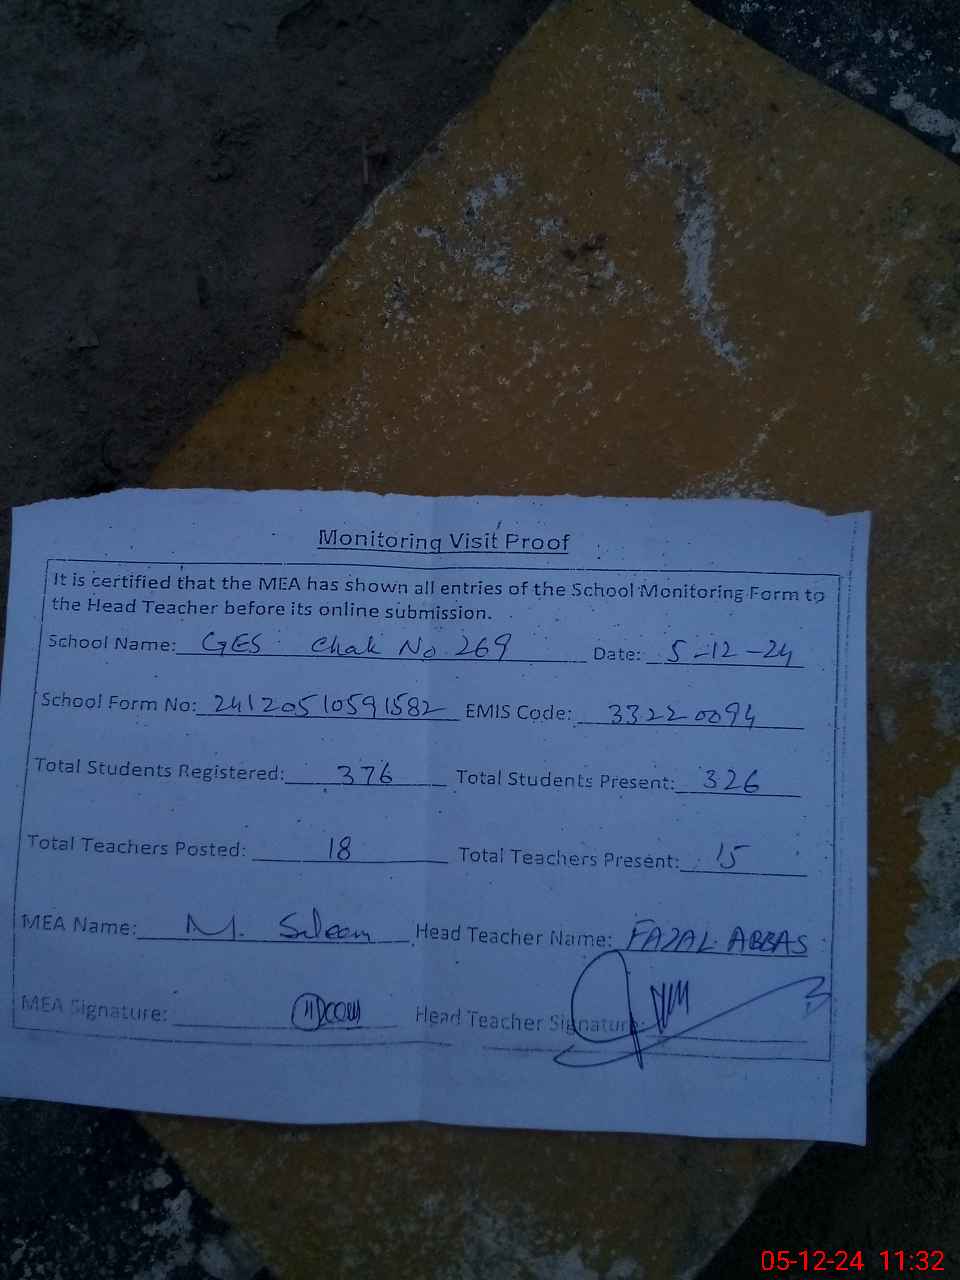 Monitoring Visit Proof
It is certified that the MEA has shown all entries of the School Monitoring Form to
the Head Teacher before its online submission.
School Name: GES Chak No 269 Date: 5-12-24
School Form No: 24120510591582 EMIS Code: 33220094
Total Students Registered: 376 Total Students Present: 326
Total Teachers Posted: 18 Total Teachers Present: 15
MEA Name: M. Saleem Head Teacher Name: FAZAL ABBAS
MEA Signature: Head Teacher Signature:
05-12-24 11:32